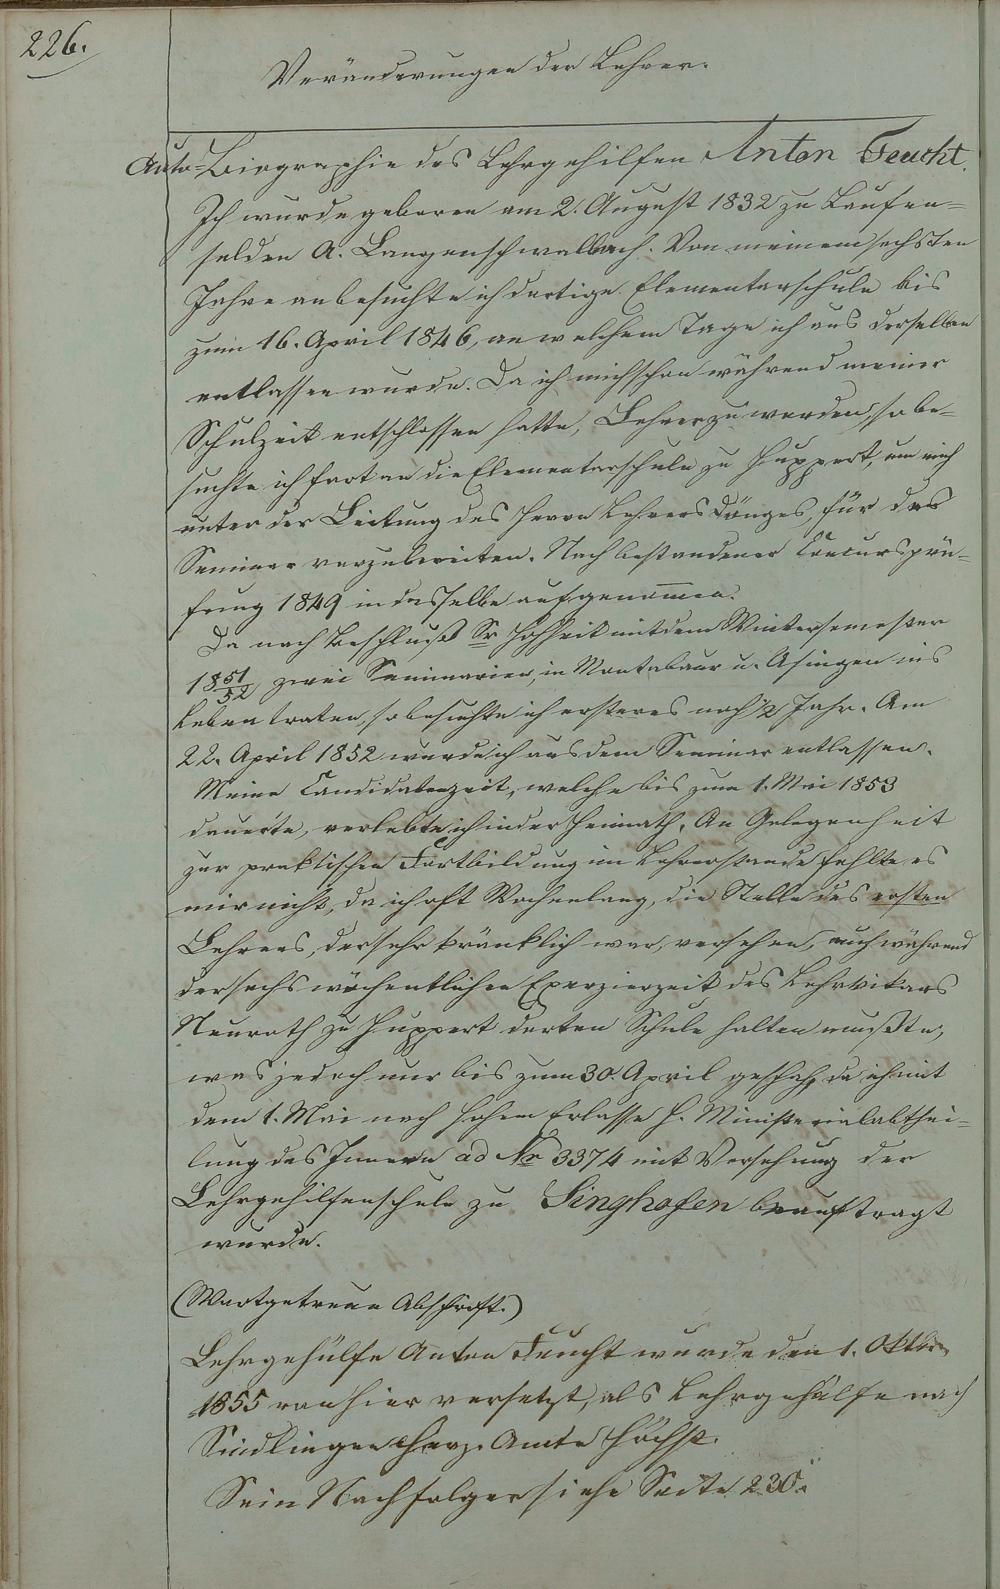 226.
Veränderungen der Lehrer.
Auto-Biographie des Lehrgehilfen Anton Feucht.
Ich wurde geboren am 2. August 1832 zu Laufen=
selden A. Langenschwalbach. Von meinem sechsten
Jahre an besuchte ich dortige Elementarschule bis
zum 16. April 1846, an welchem Tage ich aus derselben
entlassen wurde. Da ich mich schon während meiner
Schulzeit entschlossen hatte, Lehrer zu werden, so be=
suchte ich fort an die Elementarschule zu Huppert, um mich
unter der Leitung des Herrn Lehrers Dönges, für das
Seminar vorzubereiten. Nach bestandener Concursprü=
fung 1849 in dasselbe aufgenommen.
Da nach Beschluß Sr Hohheit mit dem Wintersemester
1851/52 zwei Seminarien, in Montabaur u. Usingen ins
Leben traten, so besuchte ich ersteres noch 1/2 Jahr. Am
22. April 1852 wurde ich aus dem Seminar entlassen.
Meine Candidatenzeit, welche bis zum 1. Mai 1853
dauerte, verlebte ich in der Heimath. An Gelegenheit
zur praktischen Fortbildung im Lehrerstande fehlte es
mir nicht, da ich oft Wochenlang, die Stelle des ersten
Lehrers, der sehr kränklich war, versehen, auch während
der sechs wöchentlichen Exerzierzeit des Lehrvikars
Neurath zu Huppert dorten Schule halten mußte,
was jedoch nur bis zum 30. April geschah, da ich mit
dem 1. Mai nach hohem Erlasse H. Ministerialabthei=
lung des Innern ad Nr 3374 mit Versehung der
Lehrgehilfenschule zu Singhofen beauftragt
wurde.
(Wortgetreue Abschrift.)
Lehrgehülfe Anton Feucht wurde den 1. Oktbr
1855 von hier versetzt, als Lehrgehülfe nach
Sindlingen Herz. Amts Höchst.
Sein Nachfolger siehe Seite 230.